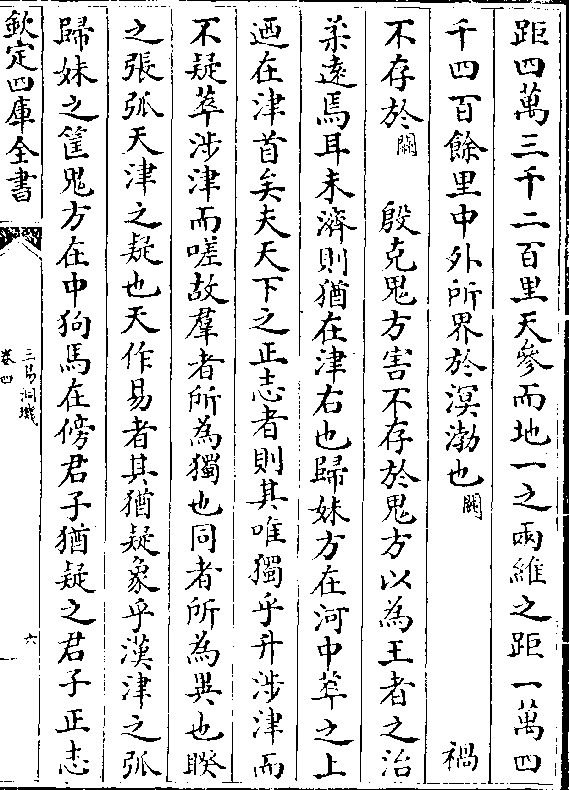 距四萬三千二百里天參而地一之兩維之距一萬四
千四百餘里中外所界於溟渤也闕　禍
不存於闕　殷克鬼方害不存於鬼方以為王者之治
柔遠焉耳未濟則猶在津右也歸妹方在河中萃之上
迺在津首矣夫天下之正志者則其唯獨乎升涉津而
不疑萃涉津而嗟故羣者所為獨也同者所為異也睽
之張弧天津之疑也天作易者其猶疑象乎漢津之弧
歸妹之筐鬼方在中狗馬在傍君子猶疑之君子正志
欽定四庫全書
三易洞璣
卷四
六